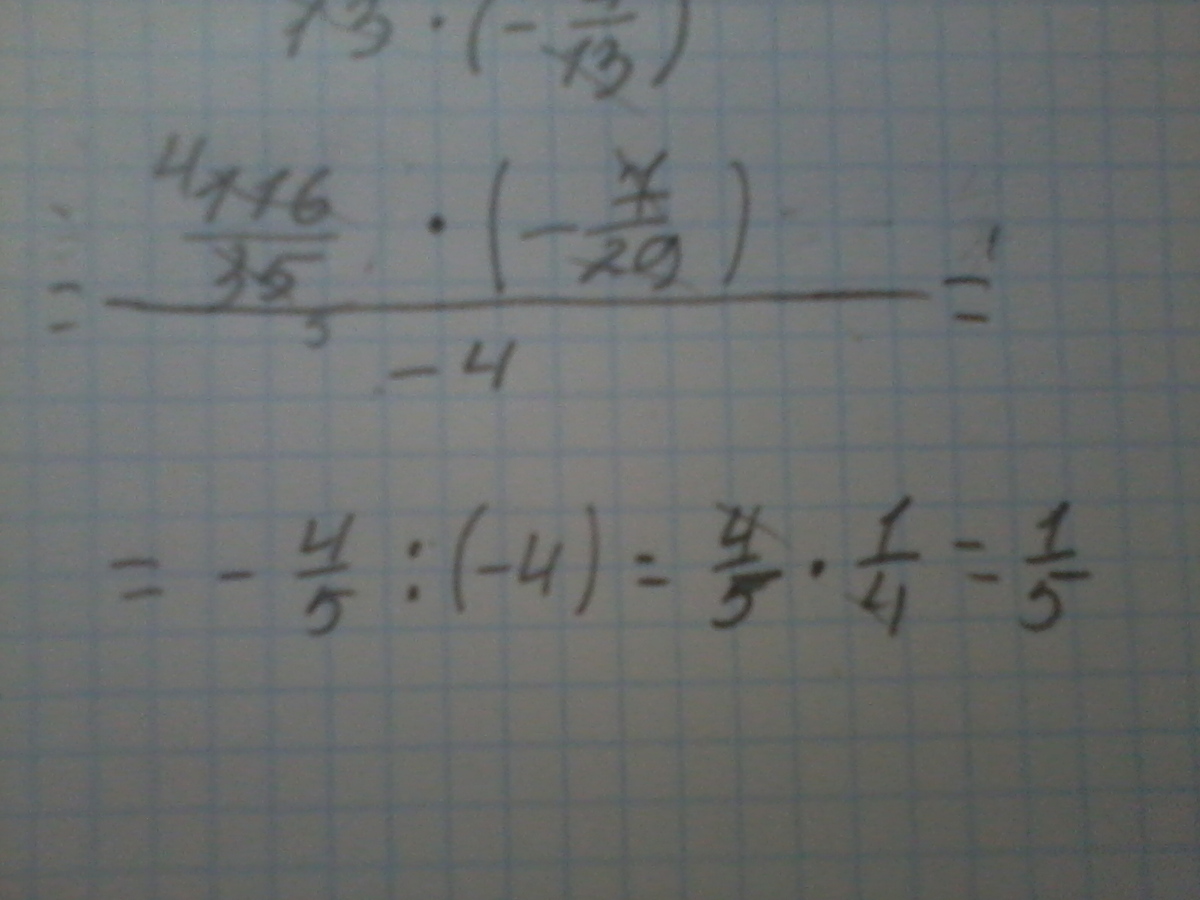 13 · (- /13)
= 4 116/35 5 · (- 7/29) / -4 =
= - 4/5 : (-4) = 4/5 · 1/4 = 1/5